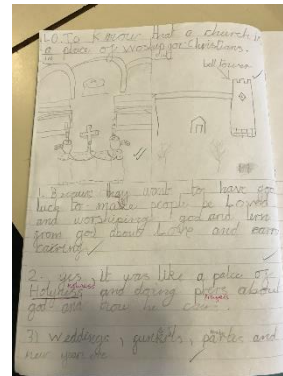 L.O. To Know that a church is
a place of worship for Christians.
bell tower
1. Because they want to have good
luck to make people be Loved
and worshiping god and lern
from god about Love and
caring
2. yes, it was like a place of
and doing about
god and how he
3) Weddings, parties and
new years